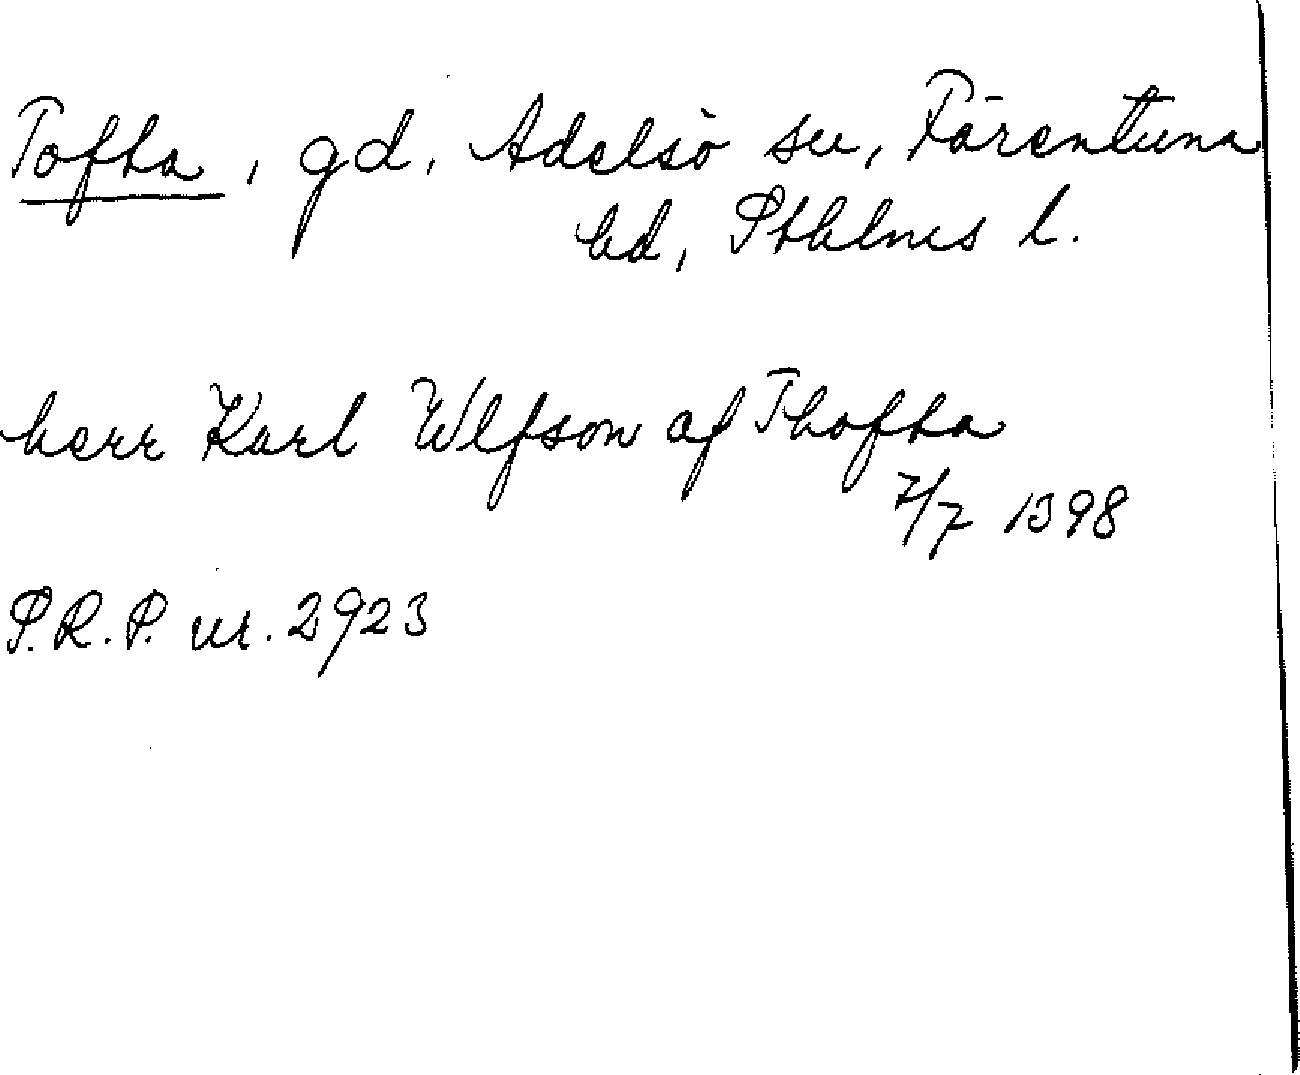 Tofta, gd, Adelsö sn, Färentuna
hd, Sthlms l.
herr Karl Wlfson af Thofta
7/7 1398
S.R.P. nr. 2923